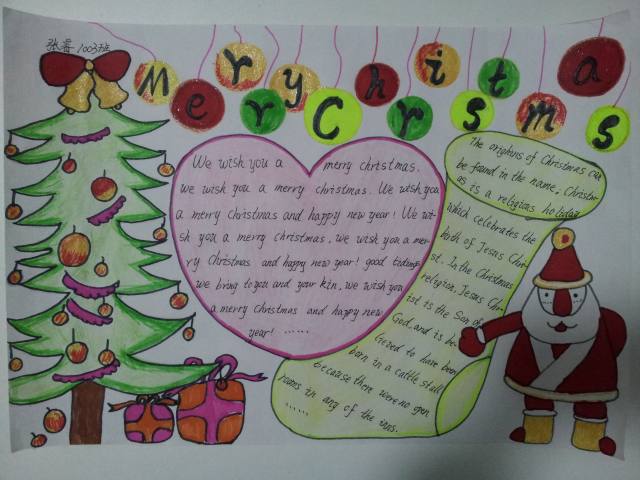 张睿 1003班
Merry Christmas
We wish you a merry christmas.
we wish you a merry christmas. We wish you
a merry christmas and happy new year! We wi-
sh you a merry christmas, we wish you a mer-
ry Christmas and happy new year! good tidings
we bring to you and your kin, we wish you
a merry Christmas and happy new
year! ......
The orighins of Christmas can
be found in the name, Christm-
as is a religious holiday
which celebrates the
birth of Jesus Chri-
st. In the Christmas
religion, Jesus Chr-
ist is the Son of
God and is be-
lieved to have been
born in a cattle stall
because there were no open
rooms in any of the inns.
......